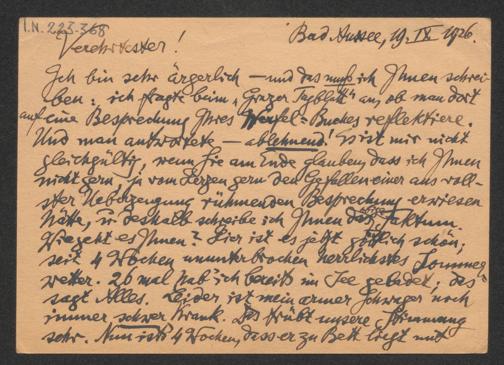 I.N. 223.368
Bad Aussee, 19. IX 1926.
Verehrtester!
Ich bin sehr ärgerlich – und das muß ich Ihnen schrei-
ben: ich fragte beim „Grazer Tagblatt" an, ob man dort
auf eine Besprechung Ihres Werfel-Buches reflektiere.
Und man antwortete – ablehnend! Es ist mir nicht
gleichgültig, wenn Sie am Ende glauben, dass ich Ihnen
nicht gern, ja vom Herzen gern den Gefallen einer aus voll-
ster Ueberzeugung rühmenden Besprechung erwiesen
hätte, u. deshalb schreibe ich Ihnen das Faktum.
Wie geht es Ihnen? Hier ist es jetzt göttlich schön;
seit 4 Wochen ununterbrochen herrlichstes Sommer-
wetter. 26 mal hab' ich bereits im See gebadet; das
sagt Alles. Leider ist mein armer Schwager noch
immer schwer krank. Das trübt unsere Stimmung
sehr. Nun ists 4 Wochen, dass er zu Bett liegt mit